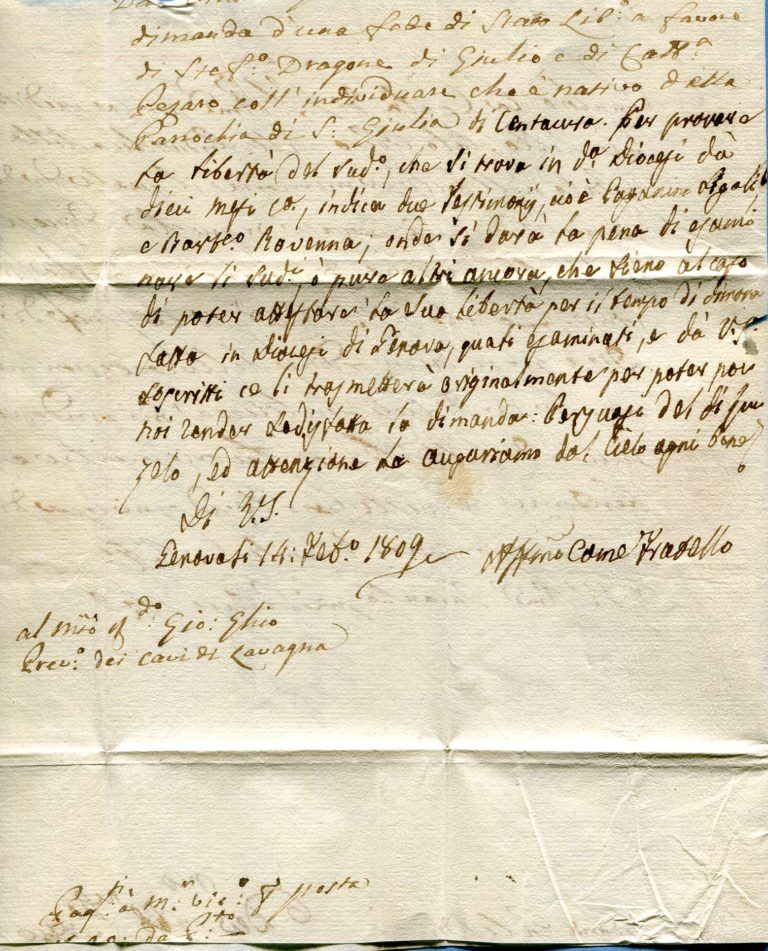 dimanda d'una fede di Stato Lib.º a favore
di Stef.º Dragone di Giulio e di Catt.ª
Pesaro coll' individuare che è nativo della
Parrochia di S: Giulia di Centaura. Per provare
la libertà del sud.º, che si trova in d.ª Diocesi dà
dieci mesi c.ª, indica due Testimonj, cioè Paganino
e Bart.eo Ravenna; onde si darà la pena di esami
nare li sud.i, ò pure altri ancora, che sieno àl caso
di poter attestare la sua libertà per il tempo di dimora
fatta in Diocesi di Genova, quali esaminati, e dà V.S.
soscritti ce li trasmetterà originalmente per poter poi
noi render sodisfatta la dimanda: Persuasi del di suo
zelo, ed attenzione le auguriamo dal Cielo ogni bene
Di V.S.
Genova li 14: Feb.º 1809 Aff.mo Come Fratello
al R.do Gio: Ghio
Prev.º dei Cavi di Lavagna
à posta